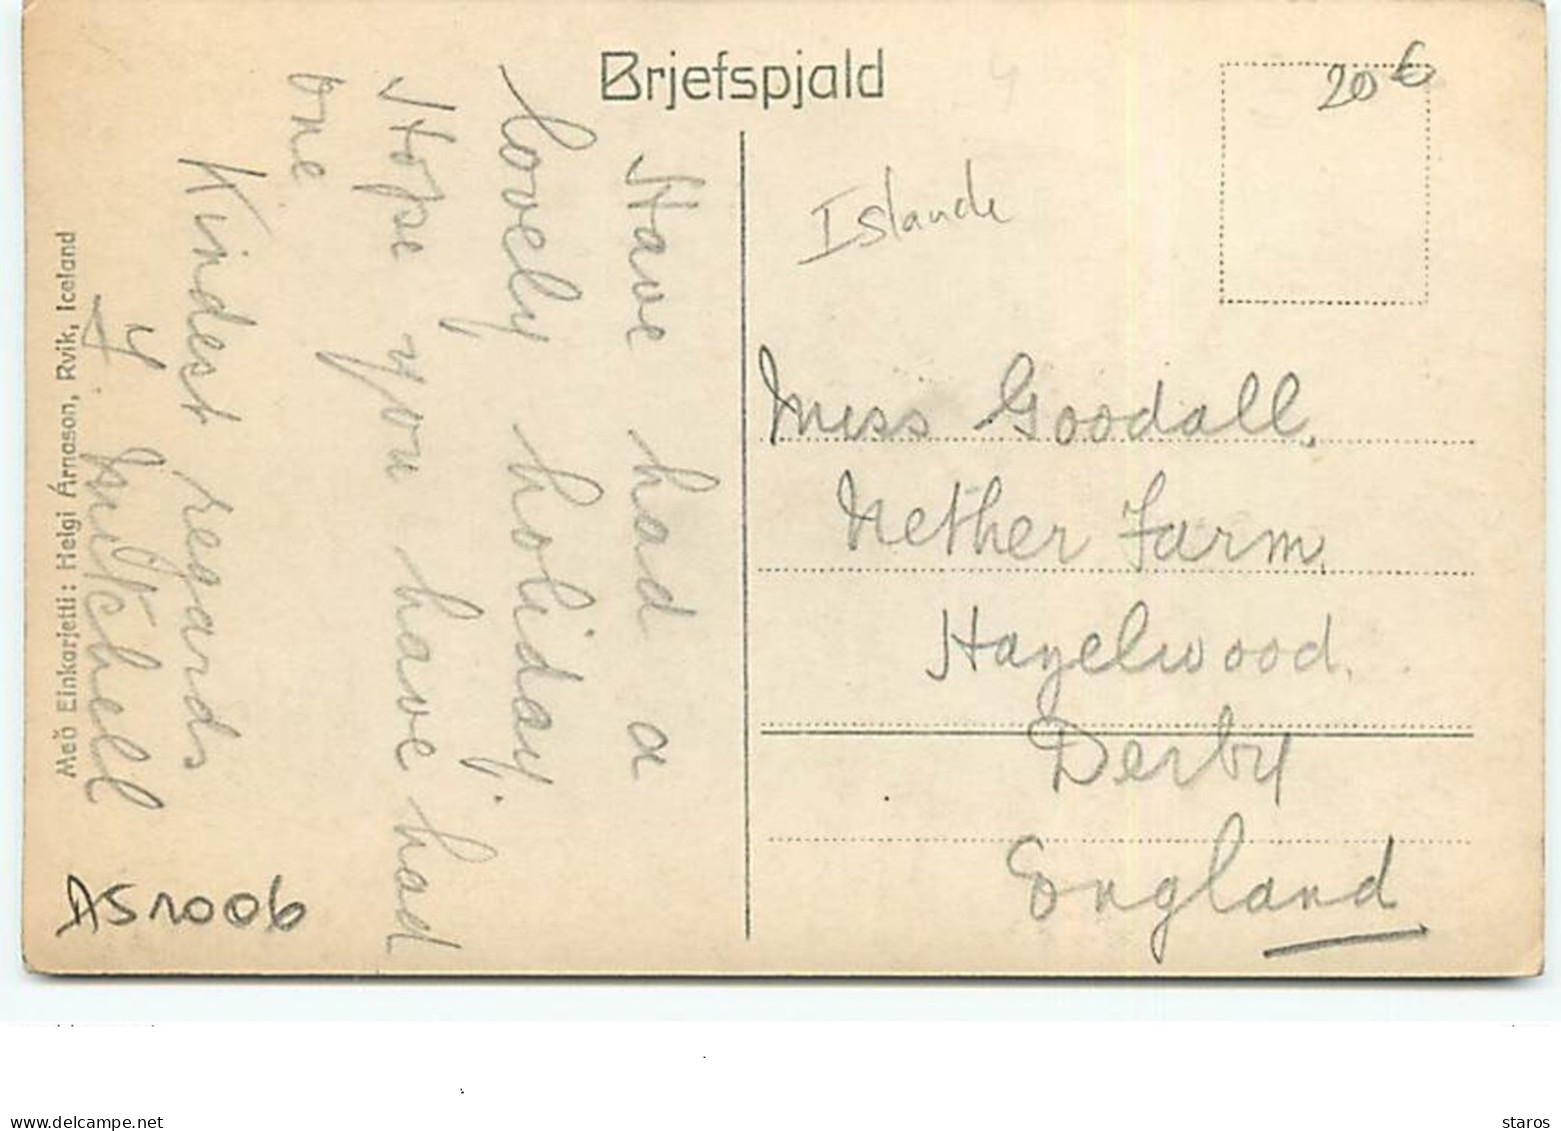 Brjefspjald
20 €
Islande
Have had a
lovely holiday.
Hope you have had
one
Kindest regards
Y. Mitchell
Með Einkarjetti: Helgi Árnason, Rvik, Iceland
AS1006
Miss Goodall,
Nether Farm,
Hazelwood.
Derby
England
delcampe.net
staros